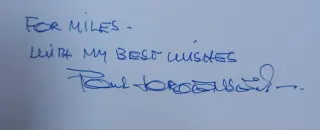 FOR MILES -
WITH MY BEST WISHES
Paul JORGENSEN